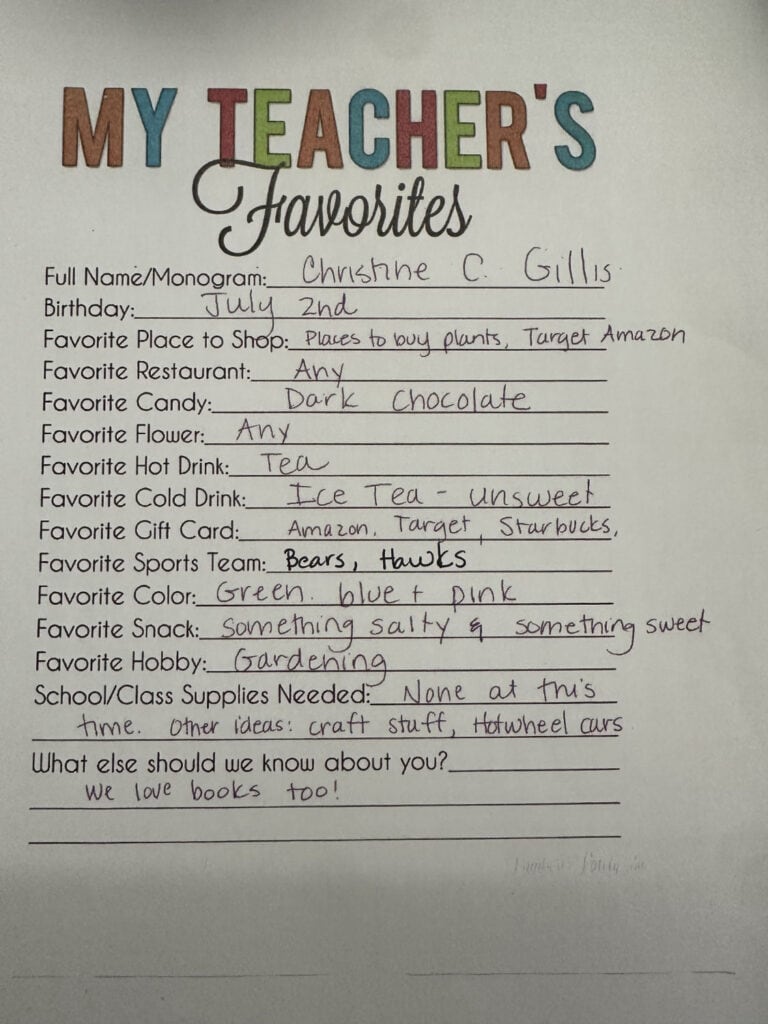 MY TEACHER'S
Favorites
Full Name/Monogram: Christine C. Gillis
Birthday: July 2nd
Favorite Place to Shop: Places to buy plants, Target Amazon
Favorite Restaurant: Any
Favorite Candy: Dark Chocolate
Favorite Flower: Any
Favorite Hot Drink: Tea
Favorite Cold Drink: Ice Tea - unsweet
Favorite Gift Card: Amazon, Target, Starbucks,
Favorite Sports Team: Bears, Hawks
Favorite Color: Green. blue + pink
Favorite Snack: Something salty & something sweet
Favorite Hobby: Gardening
School/Class Supplies Needed: None at this
time. Other ideas: craft stuff, Hotwheel cars
What else should we know about you?
We love books too!